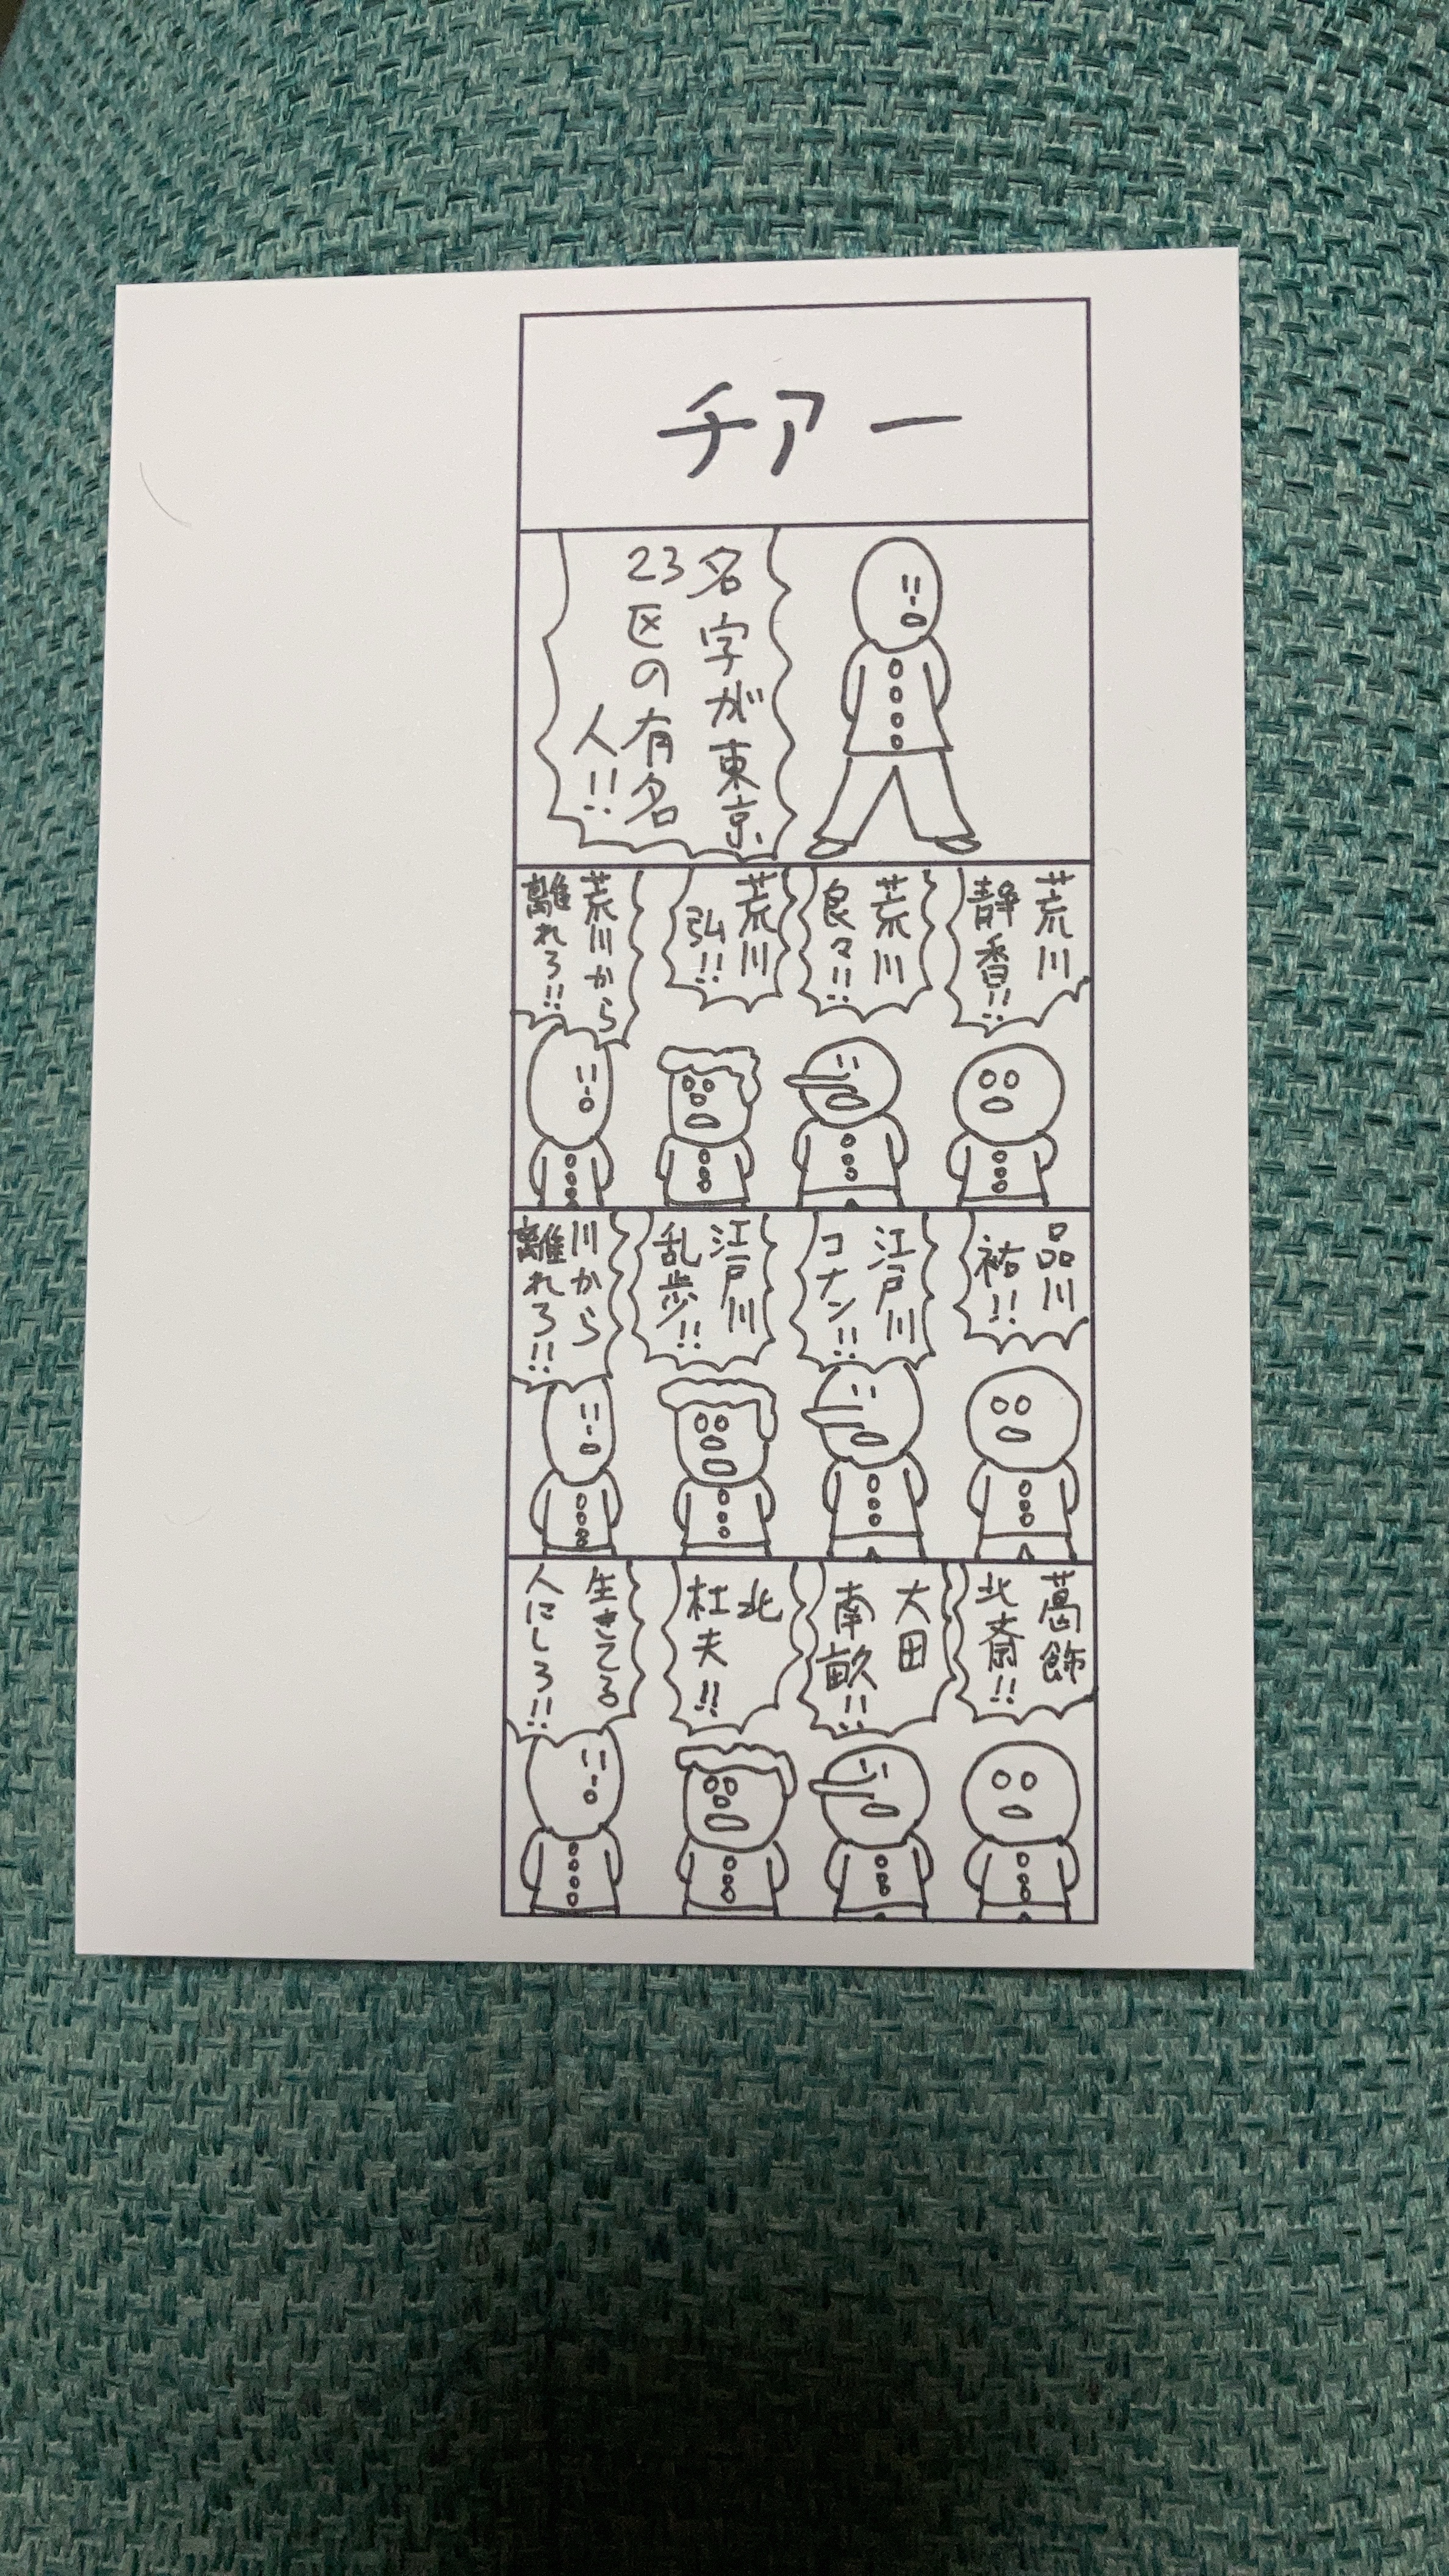 チアー
名字が東京
23区の有名
人!!
荒川
静香!!
荒川
良々!!
荒川
弘!!
荒川から
離れろ!!
品川
祐!!
江戸川
コナン!!
江戸川
乱歩!!
川から
離れろ!!
葛飾
北斎!!
大田
南畝!!
北
杜夫!!
生きてる
人にしろ!!